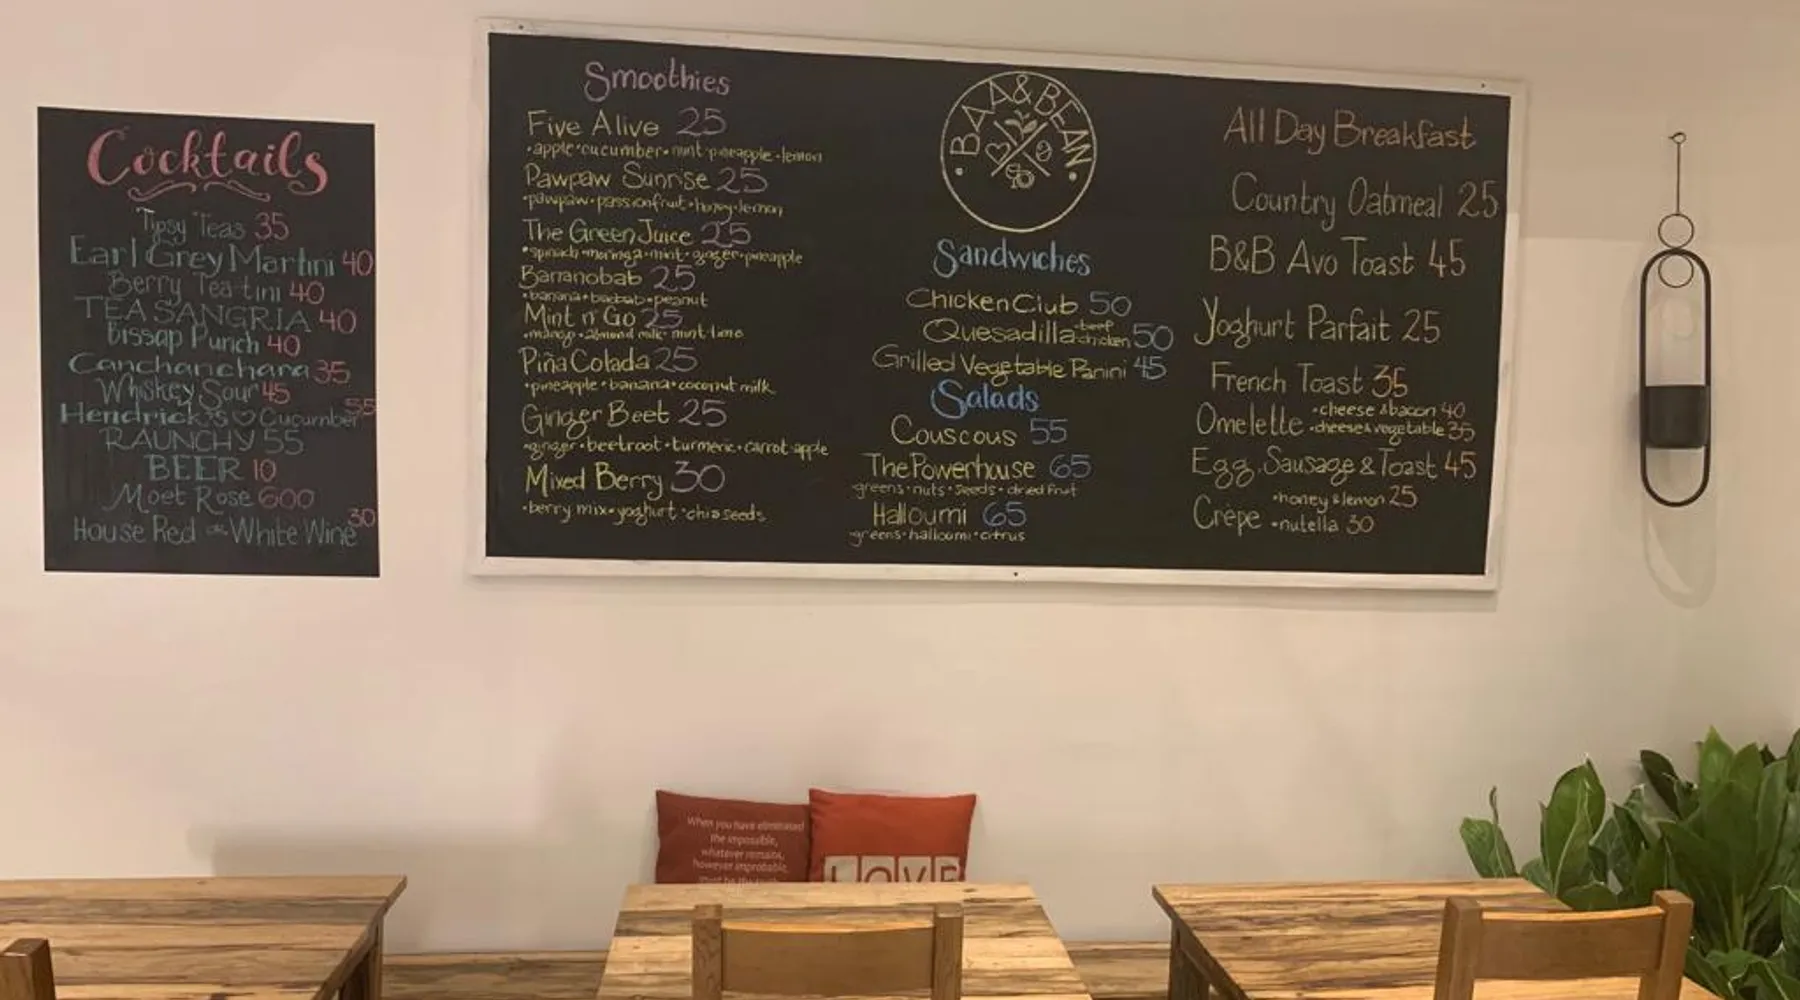 Cocktails
Tipsy Teas 35
Earl Grey Martini 40
Berry Tea-tini 40
TEA SANGRIA 40
Bissap Punch 40
Canchanchara 35
Whiskey Sour 45
Hendrick's ♡ Cucumber 55
RAUNCHY 55
BEER 10
Moet Rose 600
House Red or White Wine 30
Smoothies
Five Alive 25
•apple•cucumber•mint•pineapple•lemon
Pawpaw Sunrise 25
•pawpaw•passionfruit•honey•lemon
The Green Juice 25
•spinach•moringa•mint•ginger•pineapple
Bananobab 25
•banana•baobab•peanut
Mint n' Go 25
•mango•almond milk•mint•lime
Piña Colada 25
•pineapple•banana•coconut milk
Ginger Beet 25
•ginger•beetroot•turmeric•carrot•apple
Mixed Berry 30
•berry mix•yoghurt•chia seeds
BAA & BEAN
Sandwiches
Chicken Club 50
Quesadilla •beef •chicken 50
Grilled Vegetable Panini 45
Salads
Couscous 55
The Powerhouse 65
greens•nuts•seeds•dried fruit
Halloumi 65
•greens•halloumi•citrus
All Day Breakfast
Country Oatmeal 25
B&B Avo Toast 45
Yoghurt Parfait 25
French Toast 35
Omelette •cheese & bacon 40
•cheese & vegetable 35
Egg, Sausage & Toast 45
Crêpe •honey & lemon 25
•nutella 30
When you have eliminated
the impossible,
whatever remains,
however improbable,
LOVE